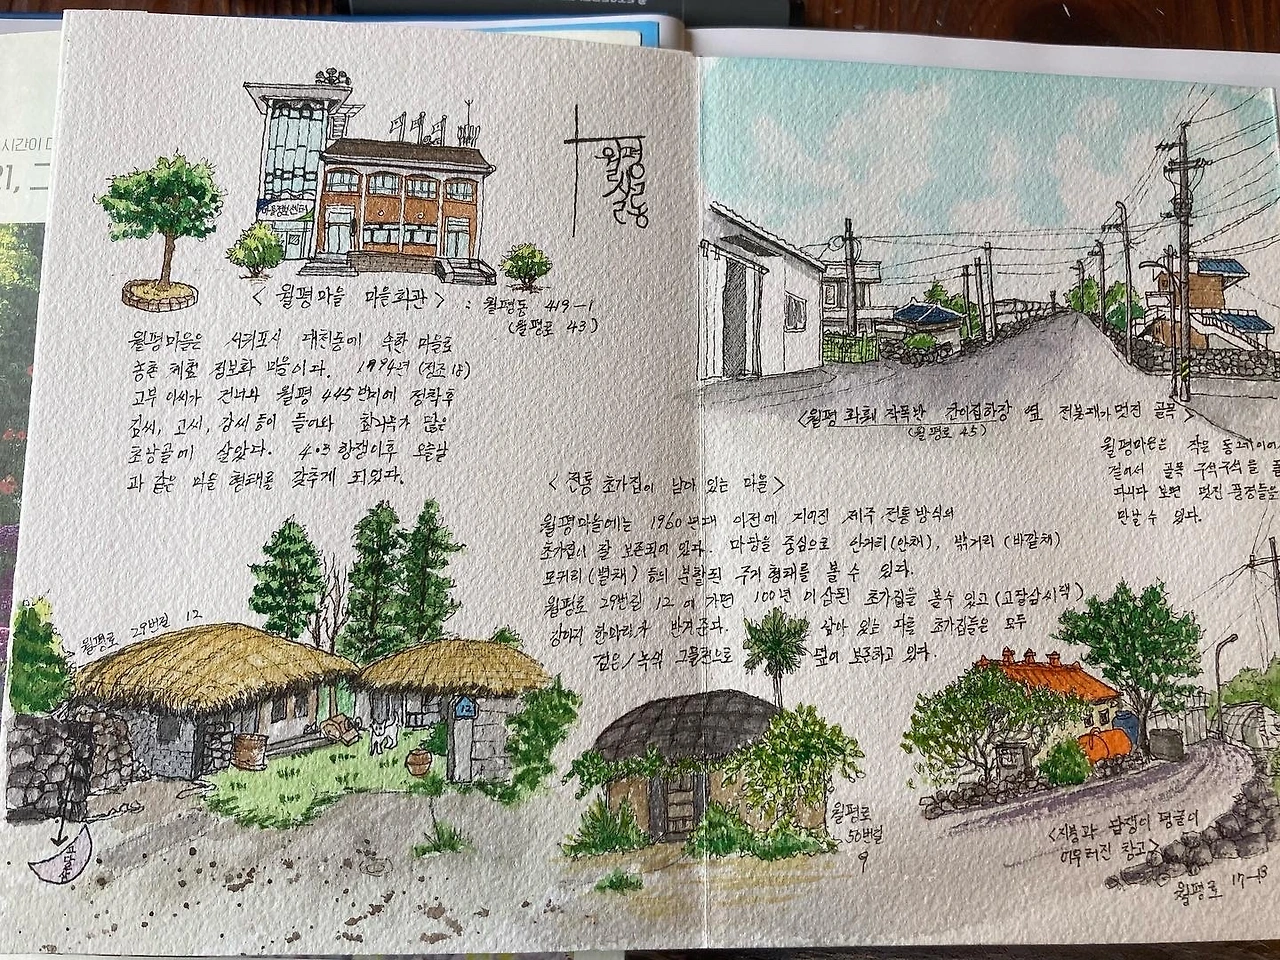 월평살고을
마을정보센터
<월평마을 마을회관> : 월평동 419-1
(월평로 43)
월평마을은 서귀포시 대천동에 속한 마을로
농촌 체험 정보화 마을이다. 1794년 (정조 18)
고부 이씨가 건너와 월평 445번지에 정착후
김씨, 고씨, 강씨 등이 들어와 참나무가 많은
에 살았다. 4·3 항쟁이후 오늘날
과 같은 마을 형태를 갖추게 되었다.
<월평 화훼 작목반 간이집하장 옆 전봇대가 멋진 골목>
(월평로 45)
월평마을은 작은 동네이어
걸어서 골목 구석구석을
다니다 보면 멋진 풍경들을
만날 수 있다.
<전통 초가집이 남아 있는 마을>
월평마을에는 1960년대 이전에 지어진 제주 전통방식의
초가집이 잘 보존되어 있다. 마당을 중심으로 안거리(안채), 밖거리(바깥채)
모커리(별채) 등의 분할된 주거 형태를 볼 수 있다.
월평로 29번길 12 에 가면 100년 이상된 초가집을 볼수 있고 (고찰삼시댁)
강아지 한마리가 반겨준다. 살아 있는 다른 초가집들은 모두
검은/녹색 그물천으로 덮어 보존하고 있다.
월평로 29번길 12
12
월평로
50번길
9
<지붕과 담쟁이 덩굴이
어우러진 창고>
월평로 17-13
시간이
21, 그